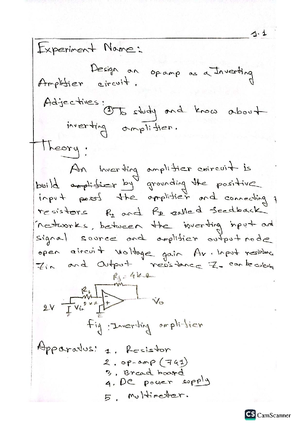 J.1
Experiment Name:
Design an op amp as a Inverting
Amplifier circuit.
Adjectives:
① To study and know about
inverting amplifier.
Theory:
An Inverting amplifier circuit is
build amplifier by grounding the positive
input the amplifier and connecting
resistors R1 and R2 called feedback
networks, between the inverting input and
signal source and amplifier output node
open circuit voltage gain Av. Input resistance
Zin and Output resistance Zo can be
R2 = 4k
R1
2V
Vo
Fig: Inverting amplifier
Apparatus: 1. Resistor
2. op-amp (741)
3. Bread board
4. DC power supply
5. Multimeter.
CS CamScanner